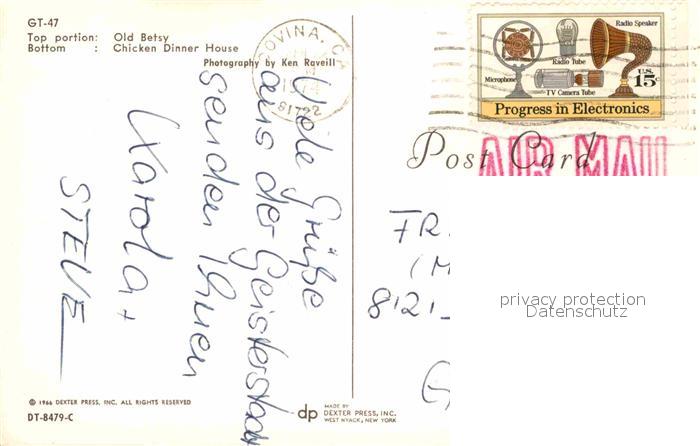 GT-47
Top portion: Old Betsy
Bottom : Chicken Dinner House
Photography by Ken Raveill
OVINA, CA
1974
81722
Radio Speaker
Radio Tube
Microphone
TV Camera Tube
U.S. 15c
Progress in Electronics
Post Card
AIR MAIL
Viele Grüße
aus der Geisterstadt
senden Ihnen
Karola +
STEVE
FR.
(M
8121
privacy protection
Datenschutz
© 1966 DEXTER PRESS, INC. ALL RIGHTS RESERVED
DT-8479-C
dp
MADE BY
DEXTER PRESS, INC.
WEST NYACK, NEW YORK